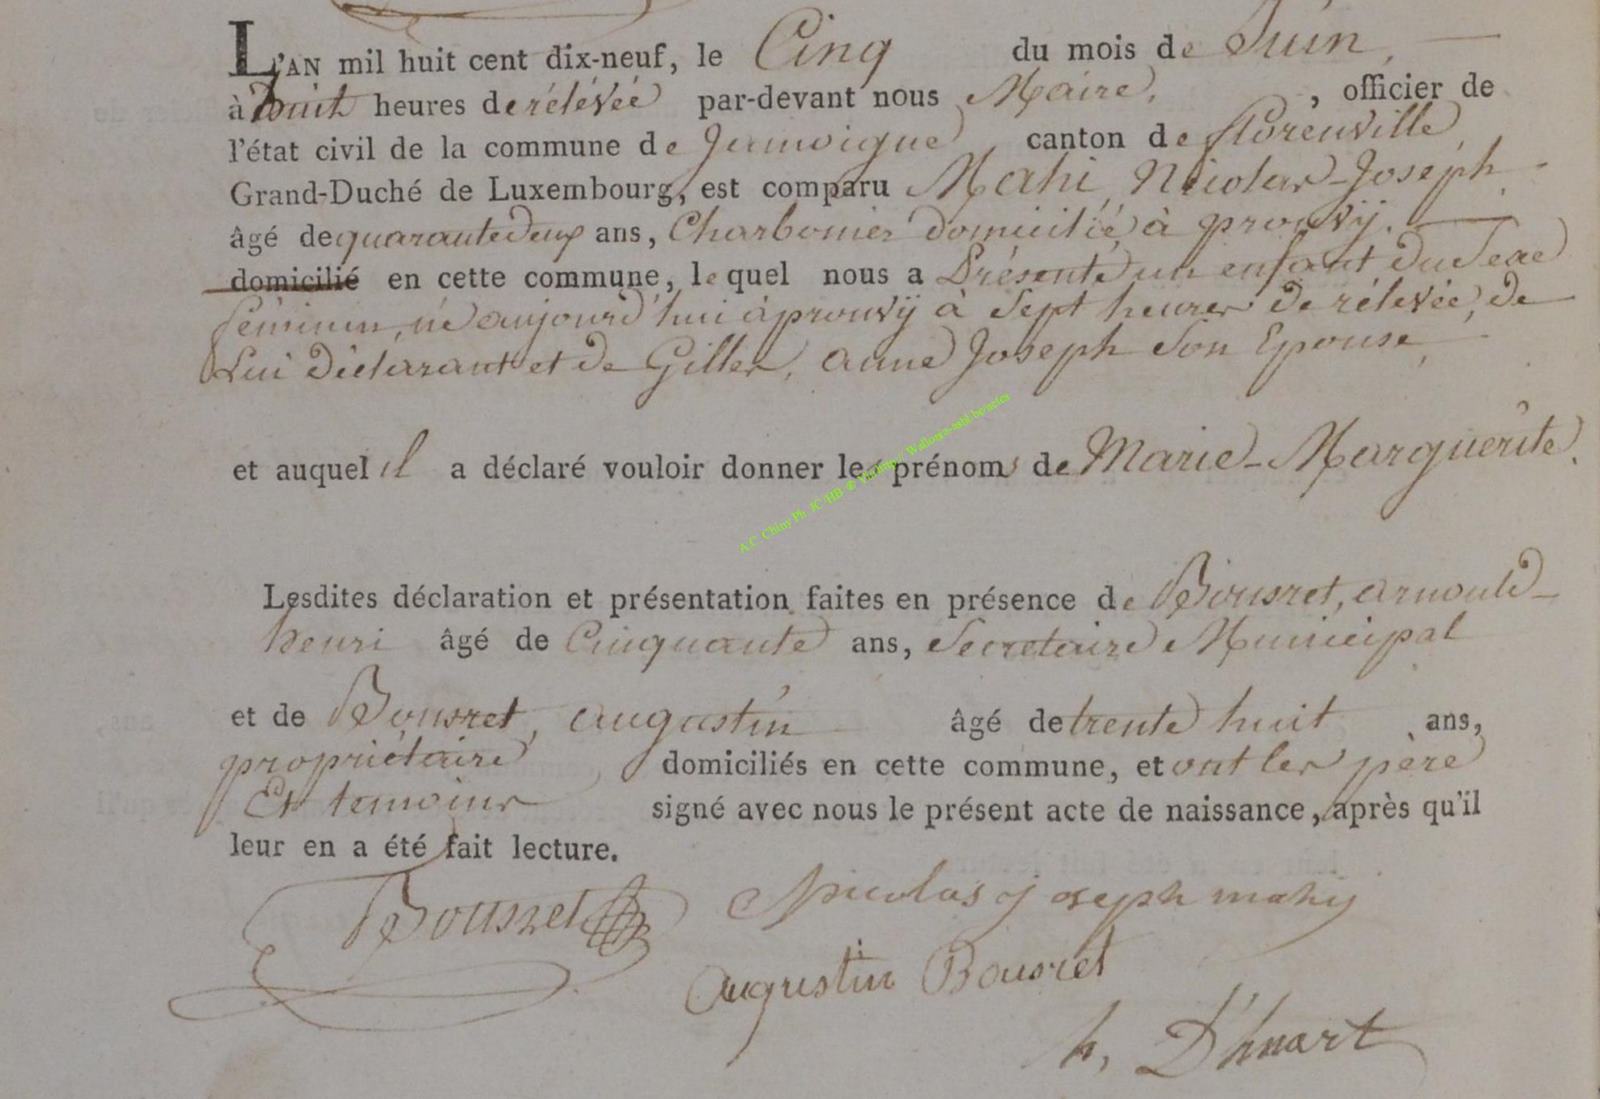 L'AN mil huit cent dix-neuf, le Cinq du mois de Juin,
à huit heures de rélévée par-devant nous Maire, , officier de
l'état civil de la commune de Jamoigne canton de florenville
Grand-Duché de Luxembourg, est comparu Mahi, Nicolas-Joseph
âgé de quarantedeux ans, Charbonier domicilié à prouvÿ.
domicilié en cette commune, lequel nous a Présenté un enfant du Sexe
féminin, né aujourd'hui à prouvÿ à Sept heures de rélevée, de
Lui Déclarant et de Gilles, anne Joseph Son Epouse,
et auquel il a déclaré vouloir donner les prénoms de Marie-Marguerite.
A.C. Chiny Ph. JC/HB @
Lesdites déclaration et présentation faites en présence de Bousret, arnould-
henri âgé de Cinquante ans, Secretaire Municipal
et de Bousret, augustin âgé de trente huit ans,
propriétaire domiciliés en cette commune, et ont les père
Et temoins signé avec nous le présent acte de naissance, après qu'il
leur en a été fait lecture.
Bousret Nicolas joseph mahy
augustin Bousret
h, D'huart